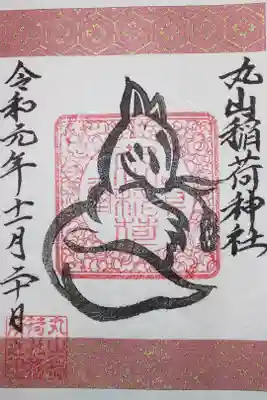 丸山稲荷神社
令和元年十一月二十日